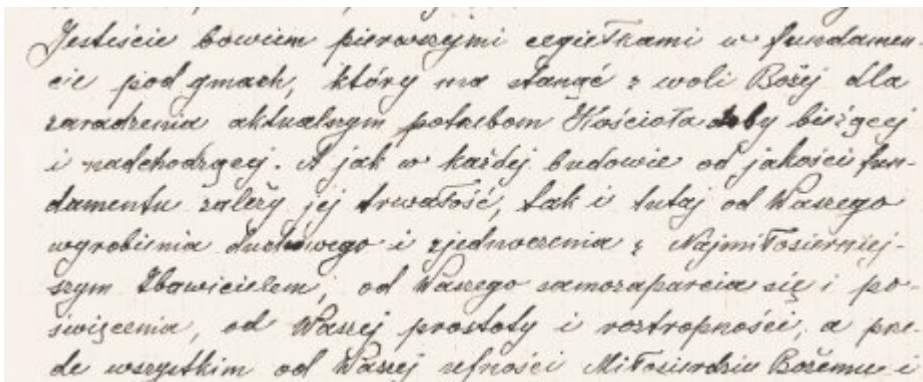 Jesteście bowiem pierwszymi cegiełkami w fundamen-
cie pod gmach, który ma stanąć z woli Bożej dla
zaradzenia aktualnym potrzebom Kościoła doby bieżącej
i nadchodzącej. A jak w każdej budowie od jakości fun-
damentu zależy jej trwałość, tak i tutaj od Waszego
wyrobienia duchowego i zjednoczenia z Najmiłosierniej-
szym Zbawicielem, od Waszego samozaparcia się i po-
święcenia, od Waszej prostoty i roztropności, a prze-
de wszystkim od Waszej ufności Miłosierdziu Bożemu i